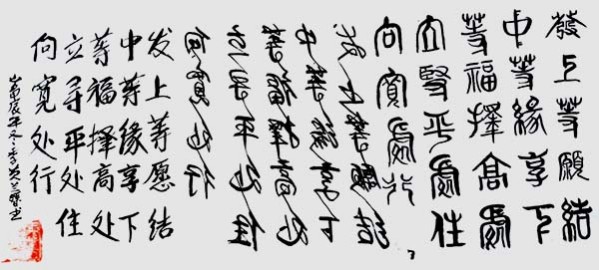 發上等願結
中等緣享下
等福擇高處
立尋平處住
向寬處行
发上等愿结
中等缘享下
等福择高处
立寻平处住
向宽处行
发上等愿结
中等缘享下
等福择高处
立寻平处住
向宽处行